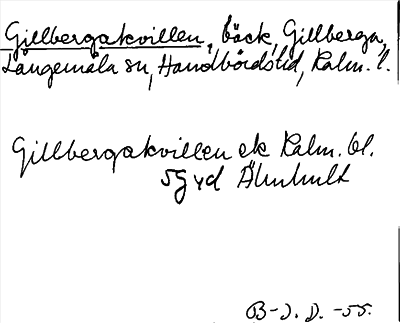 Gillbergakvillen, bäck, Gillberga,
Långemåla sn, Handbördshd, Kalm. l.
Gillbergakvillen ek Kalm. bl.
5g vd Älmhult
B-J. D. -55.